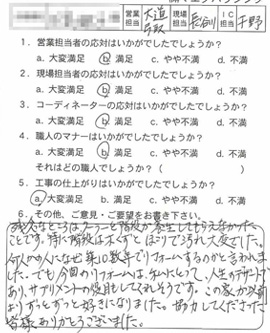 営業担当 大道 現場担当 長剣 IC担当 平野
1. 営業担当者の応対はいかがでしたでしょうか？
a. 大変満足 b. 満足 c. やや不満 d. 不満
2. 現場担当者の応対はいかがでしたでしょうか？
a. 大変満足 b. 満足 c. やや不満 d. 不満
3. コーディネーターの応対はいかがでしたでしょうか？
a. 大変満足 b. 満足 c. やや不満 d. 不満
4. 職人のマナーはいかがでしたでしょうか？
a. 大変満足 b. 満足 c. やや不満 d. 不満
それはどの職人でしょうか？(
5. 工事の仕上がりはいかがでしたでしょうか？
a. 大変満足 b. 満足 c. やや不満 d. 不満
6. その他、ご意見・ご要望をお書き下さい。
残念なところはクーラーと階段が養生してもらえなかった
ことです。特に階段は木くずとほこりで汚れて大変でした。
何人かの人になぜ築10数年でリフォームするのかと言われま
した。でも今回のリフォームは、私にとって、人生のサプリメントで
あり、サプリメントの役割をしてくれそうです。この家が以前
よりずっとずっと好きになりました。協力してくださった
皆様ありがとうございました。